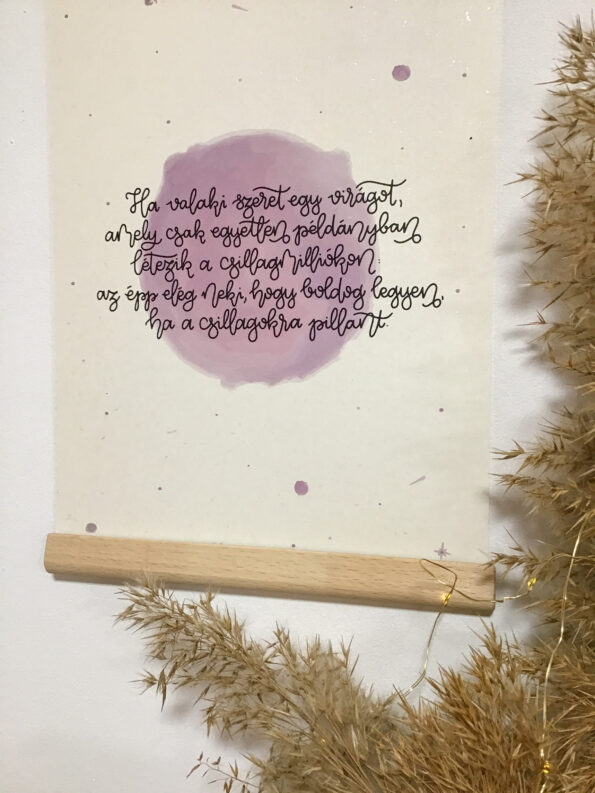 Ha valaki szeret egy virágot,
amely csak egyetlen példányban
létezik a csillagmilliókon,
az épp elég neki, hogy boldog legyen,
ha a csillagokra pillant.